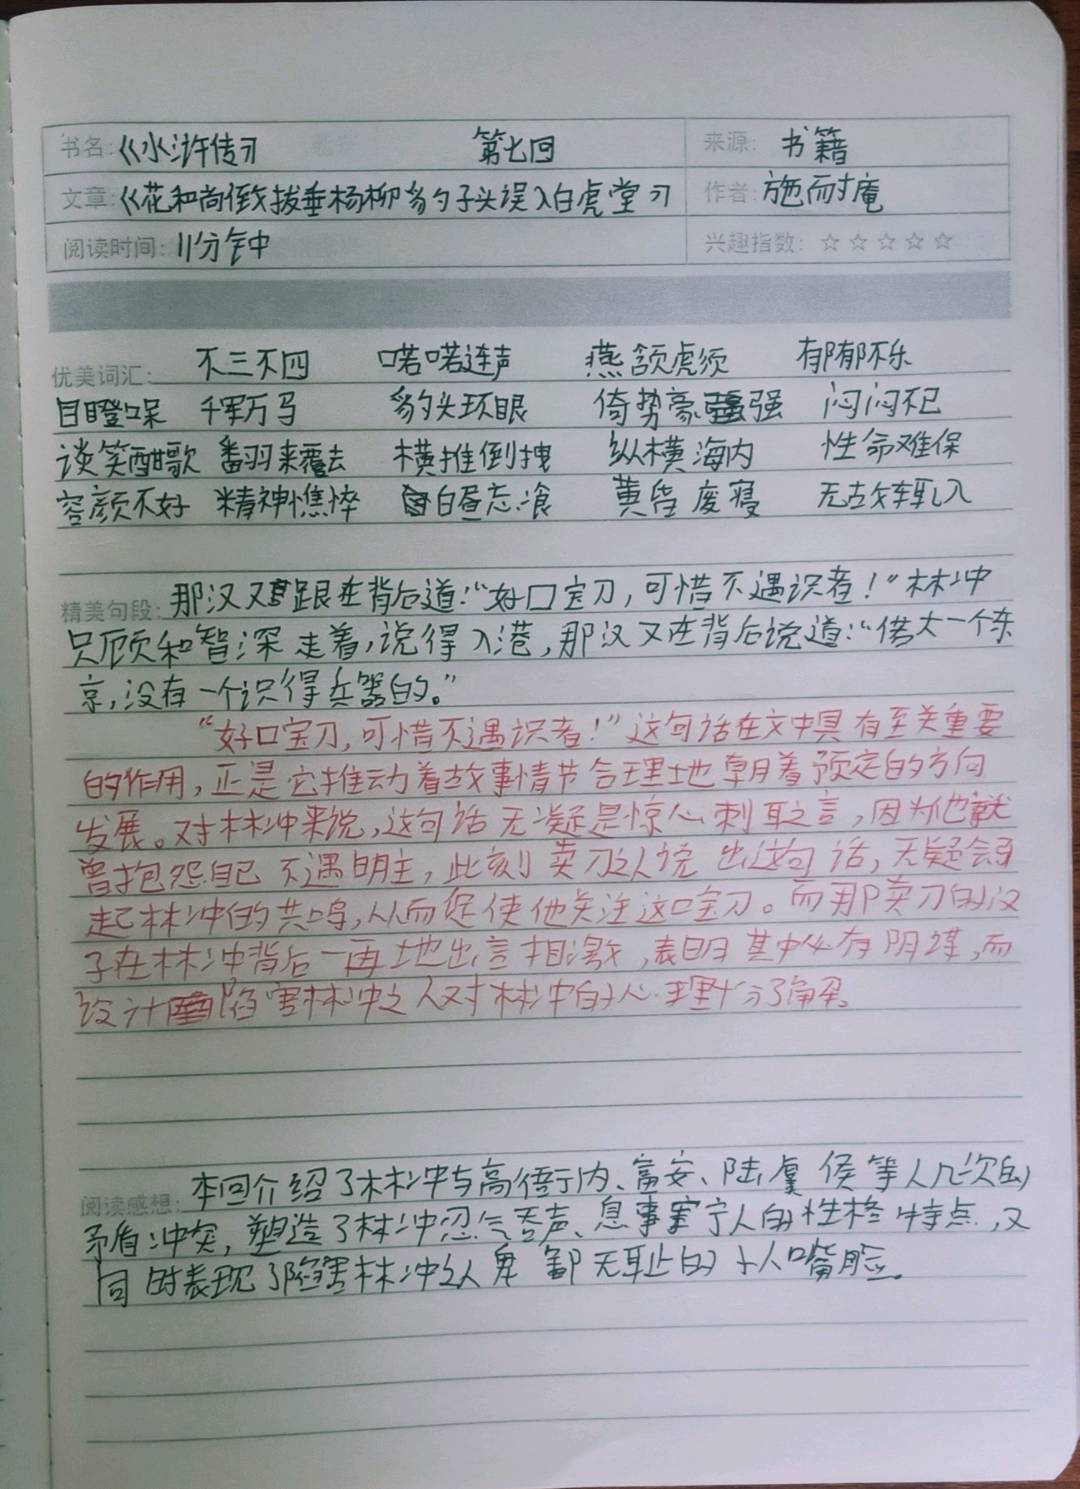 书名:《水浒传》 第七回 来源: 书籍
文章:《花和尚倒拔垂杨柳 豹子头误入白虎堂》 作者: 施耐庵
阅读时间: 11分钟 兴趣指数: ☆☆☆☆☆
优美词汇: 不三不四 喏喏连声 燕颔虎须 郁郁不乐
目瞪口呆 千军万马 豹头环眼 倚势豪强 闷闷不已
谈笑酣歌 翻来覆去 横推倒拽 纵横海内 性命难保
容颜不好 精神憔悴 白昼忘飡 黄昏废寝 无故辄入
精美句段: 那汉又跟在背后道:“好口宝刀,可惜不遇识者!”林冲
只顾和智深走着,说得入港,那汉又在背后说道:“偌大一个东
京,没有一个识得兵器的。”
“好口宝刀,可惜不遇识者!”这句话在文中具有至关重要
的作用,正是它推动着故事情节合理地朝着预定的方向
发展。对林冲来说,这句话无疑是惊心刺耳之言,因为他就
曾抱怨自己不遇明主,此刻卖刀之人说出这句话,无疑会引
起林冲的共鸣,从而促使他关注这口宝刀。而那卖刀的汉
子在林冲背后一再地出言相激,表明其中必有阴谋,而
设计陷害林冲之人对林冲的心理十分了解。
阅读感想: 本回介绍了林冲与高衙内、富安、陆虞侯等人几次的
矛盾冲突,塑造了林冲忍气吞声、息事宁人的性格特点,又
同时表现了陷害林冲之人卑鄙无耻的小人嘴脸。